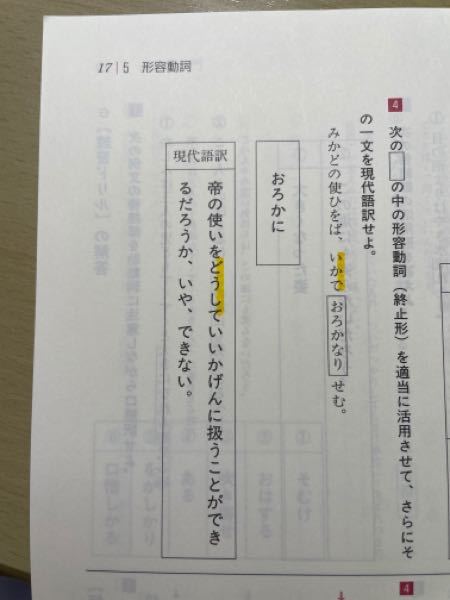 17｜5 形容動詞
4 次の□の中の形容動詞（終止形）を適当に活用させて、さらにそ
の一文を現代語訳せよ。
みかどの使ひをば、いかでおろかなりせむ。
おろかに
現代語訳
帝の使いをどうしていいかげんに扱うことができ
るだろうか、いや、できない。
4